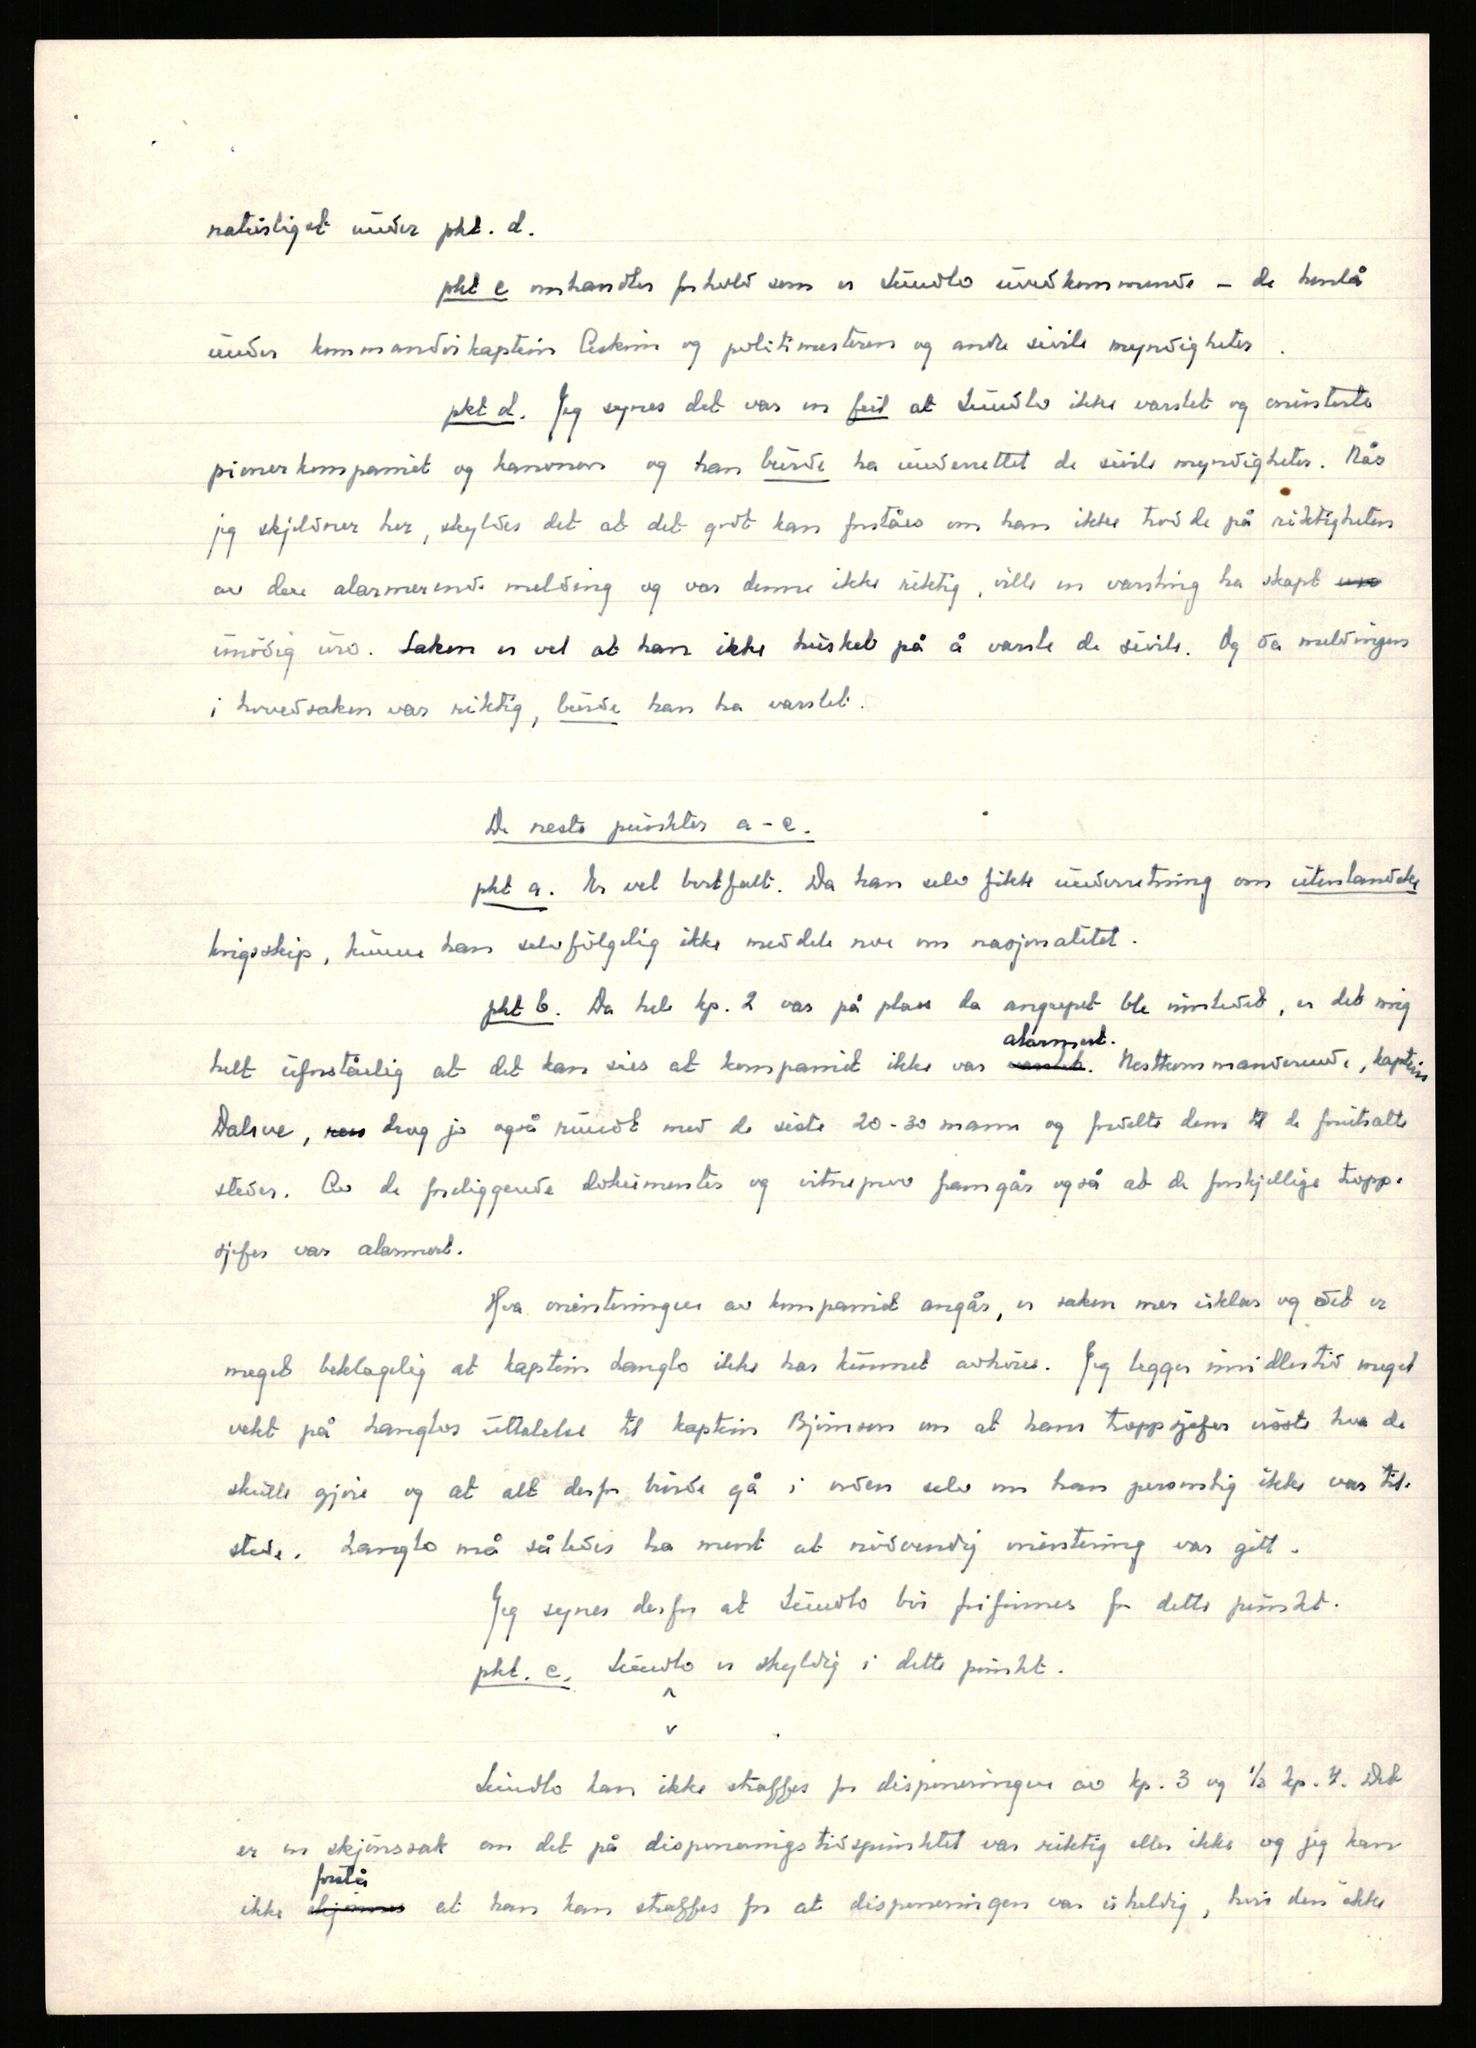 naturligst under pkt. d.
pkt c omhandler forhold som er Sundlo uvedkommende – de henlå
under kommandørkaptein Askim og politimesteren og andre sivile myndigheter.
pkt d. Jeg synes det var en feil at Sundlo ikke varslet og orienterte
pionerkompaniet og kanonen og han burde ha underrettet de sivile myndigheter. Når
jeg skjelner her, skyldes det at det godt kan forståes om han ikke trodde på riktigheten
av den alarmerende melding og var denne ikke riktig, ville en varsling ha skapt uro
unödig uro. Saken er vel at han ikke husket på å varsle de sivile. Og da meldingen
i hovedsaken var riktig, burde han ha varslet.
De neste punkter a – c.
pkt a. Er vel bortfalt. Da han selv fikk underretning om utenlandske
krigsskip, kunne han selvfölgelig ikke meddele noe om nasjonalitet.
pkt b. Da hele kp. 2 var på plass da angrepet ble innledet, er det mig
alarmert.
helt uforståelig at det kan sies at kompaniet ikke var varslet. Nestkommanderende, kaptein
Dalsve, drog jo også rundt med de siste 20-30 mann og fordelte dem til de forutsatte
steder. Av de foreliggende dokumenter og vitneprov framgår også at de forskjellige tropp-
sjefer var alarmert.
Hva orienteringen av kompaniet angår, er saken mer uklar og det er
meget beklagelig at kaptein Langlo ikke har kunnet avhöres. Jeg legger imidlertid meget
vekt på Langlos uttalelse til kaptein Björnson om at hans troppsjefer visste hva de
skulle gjöre og at alt derfor burde gå i orden selv om han personlig ikke var til-
stede. Langlo må således ha ment at nödvendig orientering var gitt.
Jeg synes derfor at Sundlo bör frifinnes for dette punkt.
pkt. c. Sundlo er skyldig i dette punkt.
Sundlo kan ikke straffes for disponeringen av kp. 3 og 1/2 kp. 4. Det
er en skjönssak om det på disponeringstidspunktet var riktig eller ikke og jeg kan
forstå
ikke skjönne at han kan straffes for at disponeringen var uheldig, hvis den ikke